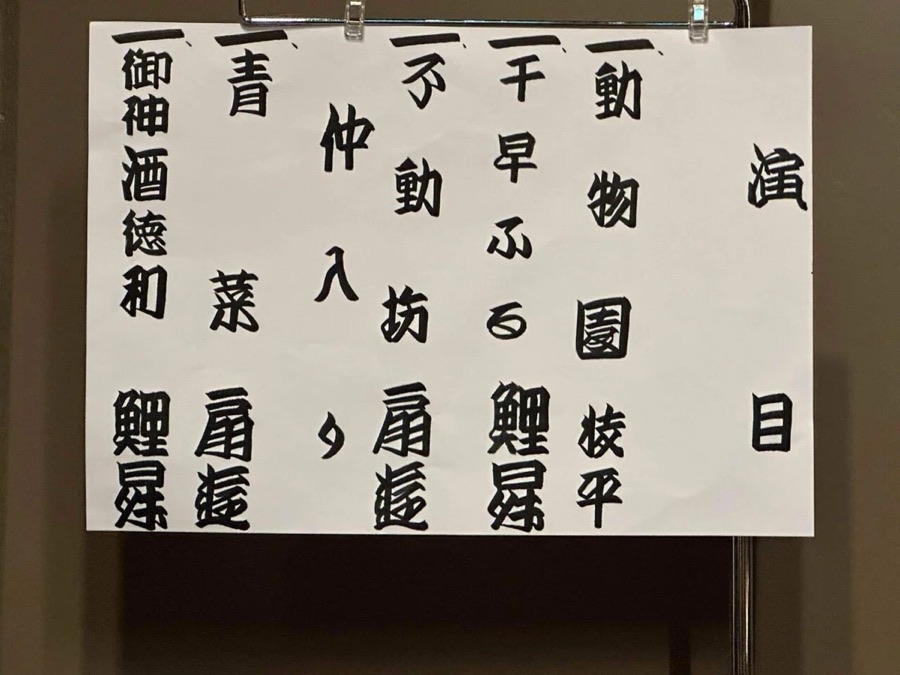 演目
一、動物園 枝平
一、千早ふる 鯉昇
一、不動坊 扇遊
仲入り
一、青菜 扇遊
一、御神酒徳利 鯉昇